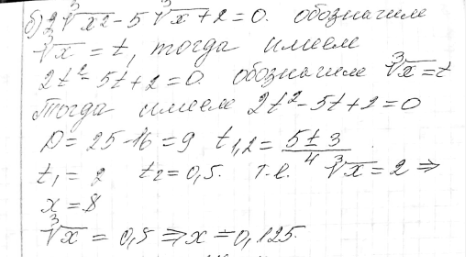 б) 2∛x² - 5∛x + 2 = 0. обозначим
∛x = t, тогда имеем
2t² - 5t + 2 = 0. обозначим ∛x = t
Тогда имеем 2t² - 5t + 2 = 0
D = 25 - 16 = 9 t₁,₂ = (5 ± 3)/4
t₁ = 2 t₂ = 0,5. т.е. ∛x = 2 ⇒
x = 8
∛x = 0,5 ⇒ x = 0,125.